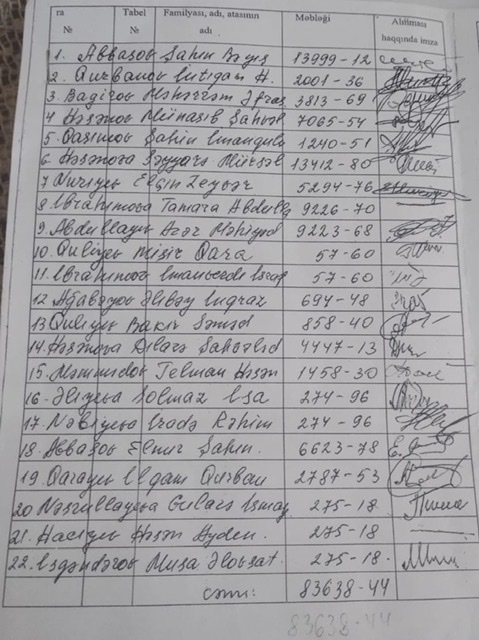 ra № Tabel № Familyası, adı, atasının adı Məbləği Alılması haqqında imza
1. Abbasov Şahin Bəyiş 13999-12
2. Qurbanov İntiqam H. 2001-36
3 Bağirov Məhərrəm Əfraş 3813-69
4 Həsənov Münasib Şahvəl 7065-54
5 Qasımov Şahin İmanqulu 1240-51
6 Həsənova Səyyarə Mürsəl 13412-80
7 Nuriyev Elçin Zeynər 5294-76
8 İbrahimova Tamara Abdulla 9226-70
9 Abdullayev Azər Məhiyəd 9223-68
10 Quliyev Misir Qara 57-60
11 İbrahimov İmanverdi İsraf 57-60
12 Ağabəyov Əlibəy 694-48
13 Quliyev Bakir Səməd 858-40
14 Həsənova Dilarə Şahvələd 4447-13
15. Məmmədov Telman Həsən 1458-30
16- Əliyeva Solmaz İsa 274-96
17. Nəbiyeva İradə Rəhim 274-96
18. Abbasov Elnur Şahin. 6623-78
19. Qarayev İlqam Qurban 2787-53
20 Nəsrullayeva Gularə İsmay 275-18
21. Hacıyev Həsən Ayden. 275-18
22. İsgəndərov Musa Əlövsat. 275-18-
cəmi: 83638-44
83638-44